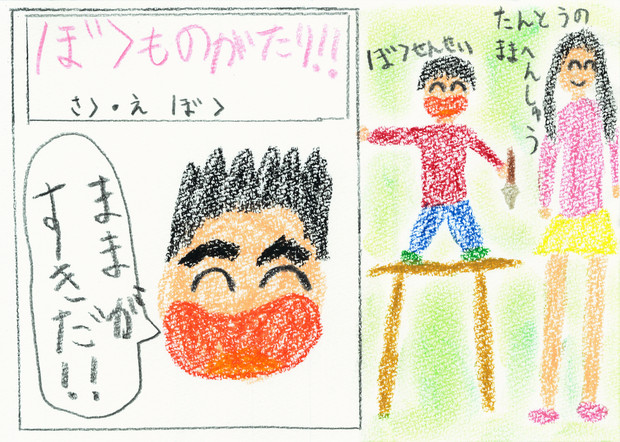 ぼくものがたり!!
さく・え ぼく
ままが
すきだ!!
ぼくせんせい
たんとうの
ままへんしゅう